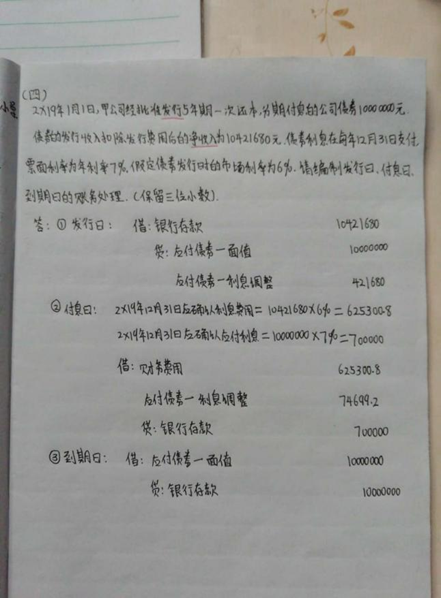 (四)
2X19年1月1日,甲公司经批准发行5年期一次还本,分期付息的公司债券10000000元.
债券的发行收入扣除发行费用后的净收入为10421680元.债券利息在每年12月31日支付
票面利率为年利率7%,假定债券发行时的市场利率为6%.请编制发行日、付息日、
到期日的账务处理.(保留三位小数).
答:① 发行日: 借:银行存款 10421680
贷:应付债券—面值 10000000
应付债券—利息调整 421680
② 付息日: 2X19年12月31日应确认利息费用=10421680X6%=625300.8
2X19年12月31日应确认应付利息=10000000X7%=700000
借:财务费用 625300.8
应付债券—利息调整 74699.2
贷:银行存款 700000
③ 到期日: 借:应付债券—面值 10000000
贷:银行存款 10000000